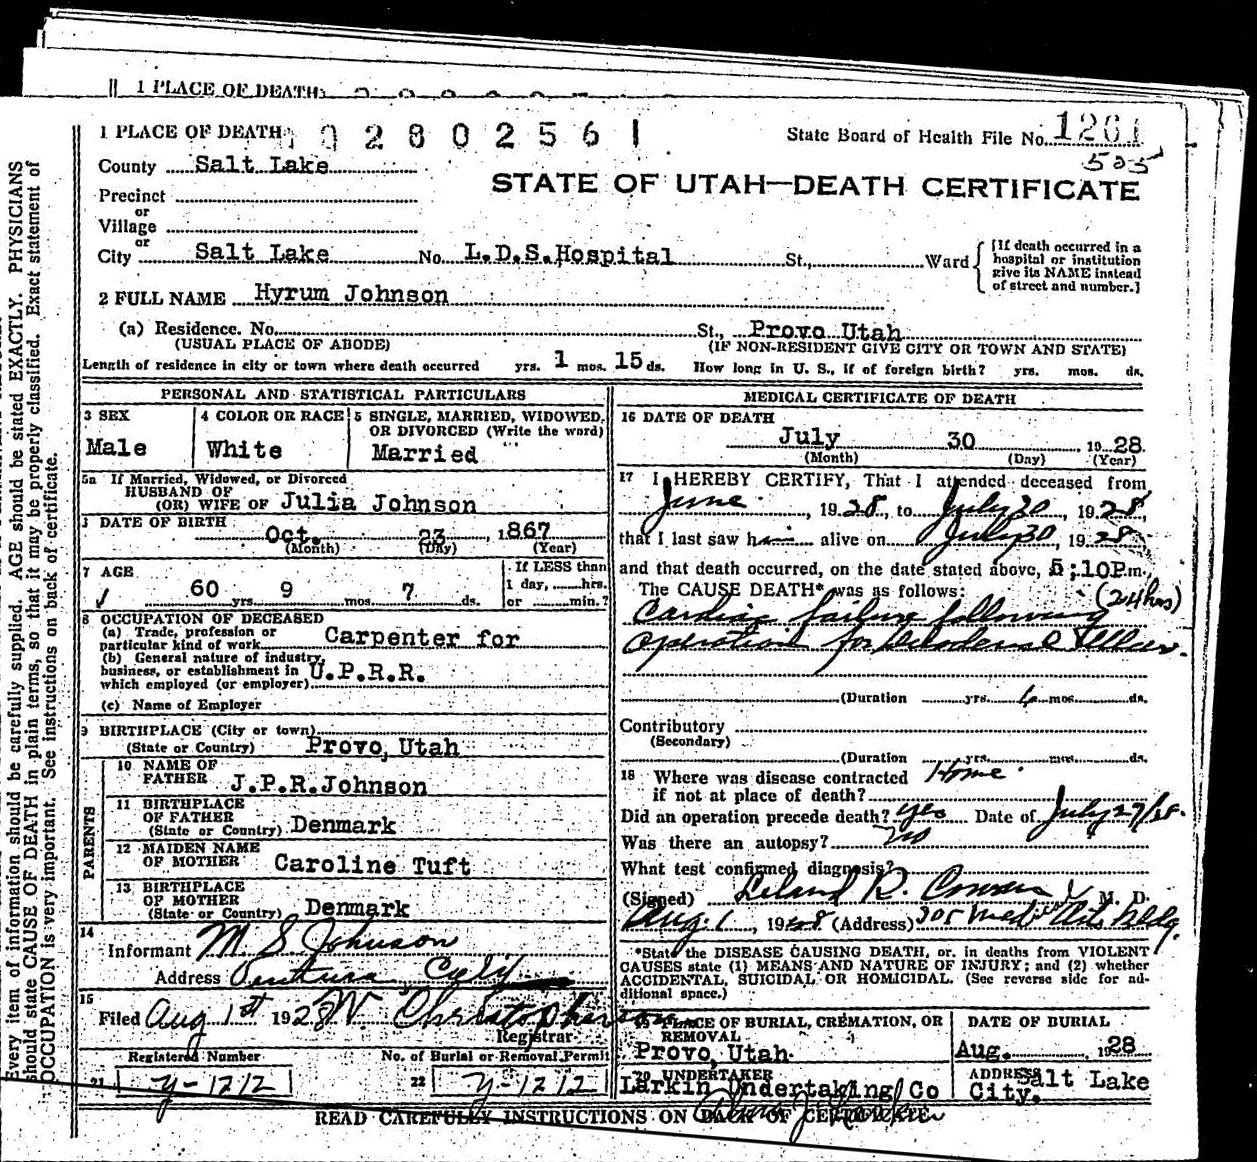 1 PLACE OF DEATH
1 PLACE OF DEATH 0 2 8 0 2 5 6 1 State Board of Health File No. 1261
505
County Salt Lake
STATE OF UTAH—DEATH CERTIFICATE
Precinct
or
Village
or
City Salt Lake No. L.D.S. Hospital St., Ward
[If death occurred in a
hospital or institution
give its NAME instead
of street and number.]
2 FULL NAME Hyrum Johnson
(a) Residence. No. St., Provo Utah
(USUAL PLACE OF ABODE) (IF NON-RESIDENT GIVE CITY OR TOWN AND STATE)
Length of residence in city or town where death occurred yrs. 1 mos. 15 ds. How long in U. S., if of foreign birth? yrs. mos. ds.
PERSONAL AND STATISTICAL PARTICULARS
3 SEX
Male
4 COLOR OR RACE
White
5 SINGLE, MARRIED, WIDOWED,
OR DIVORCED (Write the word)
Married
5a If Married, Widowed, or Divorced
HUSBAND OF
(OR) WIFE OF Julia Johnson
DATE OF BIRTH
Oct. 23 1867
(Month) (Day) (Year)
7 AGE
60 yrs. 9 mos. 7 ds.
If LESS than
1 day, hrs.
or min.?
8 OCCUPATION OF DECEASED
(a) Trade, profession or
particular kind of work Carpenter for
(b) General nature of industry,
business, or establishment in
which employed (or employer) U.P.R.R.
(c) Name of Employer
9 BIRTHPLACE (City or town)
(State or Country) Provo, Utah
PARENTS
10 NAME OF
FATHER J.P.R.Johnson
11 BIRTHPLACE
OF FATHER
(State or Country) Denmark
12 MAIDEN NAME
OF MOTHER Caroline Tuft
13 BIRTHPLACE
OF MOTHER
(State or Country) Denmark
14
Informant M. S. Johnson
Address Ventura Calif
15
Filed Aug 1st 1928
Registrar
Registered Number No. of Burial or Removal Permit
21 Y-1212 22 Y-1212
MEDICAL CERTIFICATE OF DEATH
16 DATE OF DEATH
July 30 1928
(Month) (Day) (Year)
17 I HEREBY CERTIFY, That I attended deceased from
June, 1928, to July 30, 1928,
that I last saw him alive on July 30, 1928
and that death occurred, on the date stated above, 5:10P.m.
The CAUSE DEATH* was as follows: (24 hrs)
Cardiac failure following
operation for Duodenal Ulcer.
(Duration yrs. 6 mos. ds.
Contributory
(Secondary)
(Duration yrs. mos. ds.
18 Where was disease contracted Home
if not at place of death?
Did an operation precede death? yes Date of July 27/28.
Was there an autopsy? no
What test confirmed diagnosis?
(Signed) Leland R. Cowan M. D.
Aug. 1, 1928 (Address) 305 Medical Arts Bldg.
*State the DISEASE CAUSING DEATH, or, in deaths from VIOLENT
CAUSES state (1) MEANS AND NATURE OF INJURY; and (2) whether
ACCIDENTAL, SUICIDAL OR HOMICIDAL. (See reverse side for ad-
ditional space.)
PLACE OF BURIAL, CREMATION, OR
REMOVAL
Provo, Utah.
DATE OF BURIAL
Aug. 1928
20 UNDERTAKER
Larkin Undertaking Co
ADDRESS Salt Lake
City.
READ CAREFULLY INSTRUCTIONS ON BACK OF CERTIFICATE
every item of information should be carefully supplied. AGE should be stated EXACTLY. PHYSICIANS
should state CAUSE OF DEATH in plain terms, so that it may be properly classified. Exact statement of
OCCUPATION is very important. See instructions on back of certificate.